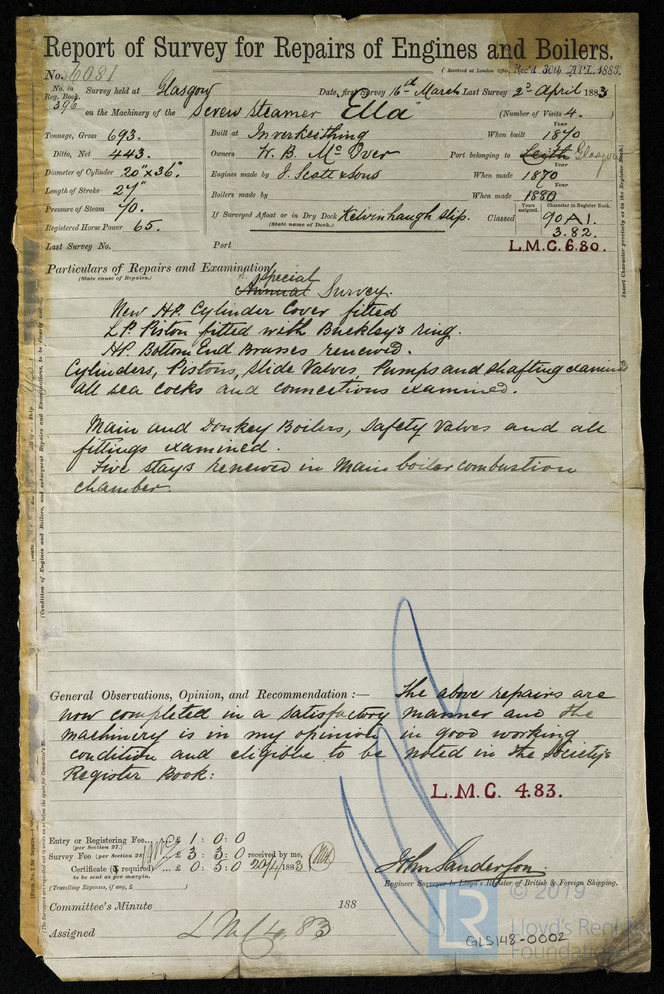 Report of Survey for Repairs of Engines and Boilers.
No. 6081 (Received at London Office, Rec'd 30th APL. 1883.
No. in Reg. Book. 396 Survey held at Glasgow Date, first Survey 16th March Last Survey 2d April 1883
on the Machinery of the Screw steamer "Ella" (Number of Visits 4.)
Tonnage, Gross 693. Built at Inverkeithing When built Year 1870
Ditto, Net 443. Owners W. B. McOver Port belonging to Leith Glasgow
Diameter of Cylinder 20"x36" Engines made by J. Scott & sons When made Year 1870
Length of Stroke 27" Boilers made by When made Year 1880
Pressure of Steam 70. If Surveyed Afloat or in Dry Dock Kelvinhaugh slip. Classed Years assigned. Character in Register Book. 90A1.
(State name of Dock.) 3.82.
Registered Horse Power 65.
Last Survey No. Port L.M.C. 6.80.
Particulars of Repairs and Examination
(State cause of Repairs.)
Special
Annual Survey.
New HP. Cylinder Cover fitted
LP. Piston fitted with Buckley's ring.
HP. Bottom End Brasses renewed.
Cylinders, Pistons, Slide Valves, Pumps and shafting examined
all sea cocks and connections examined.
Main and Donkey Boilers, Safety Valves and all
fittings examined.
Five stays renewed in Main boiler combustion
chamber.
General Observations, Opinion, and Recommendation:— The above repairs are
now completed in a satisfactory manner and the
machinery is in my opinion in good working
condition and eligible to be noted in the Society's
Register Book:
L.M.C. 4.83.
Entry or Registering Fee... £ 1 : 0 : 0
(per Section 27.)
Survey Fee (per Section 28) £ 3 : 3 : 0 received by me,
Certificate (if required) £ 0 : 5 : 0 20/4/1883
to be sent as per margin.
(Travelling Expenses, if any, £ )
John Sanderson.
Engineer Surveyor to Lloyd's Register of British & Foreign Shipping.
Committee's Minute 188
Assigned LMC 4 83
© 2019
LR Lloyd's Register
Foundation
GLS148-0002